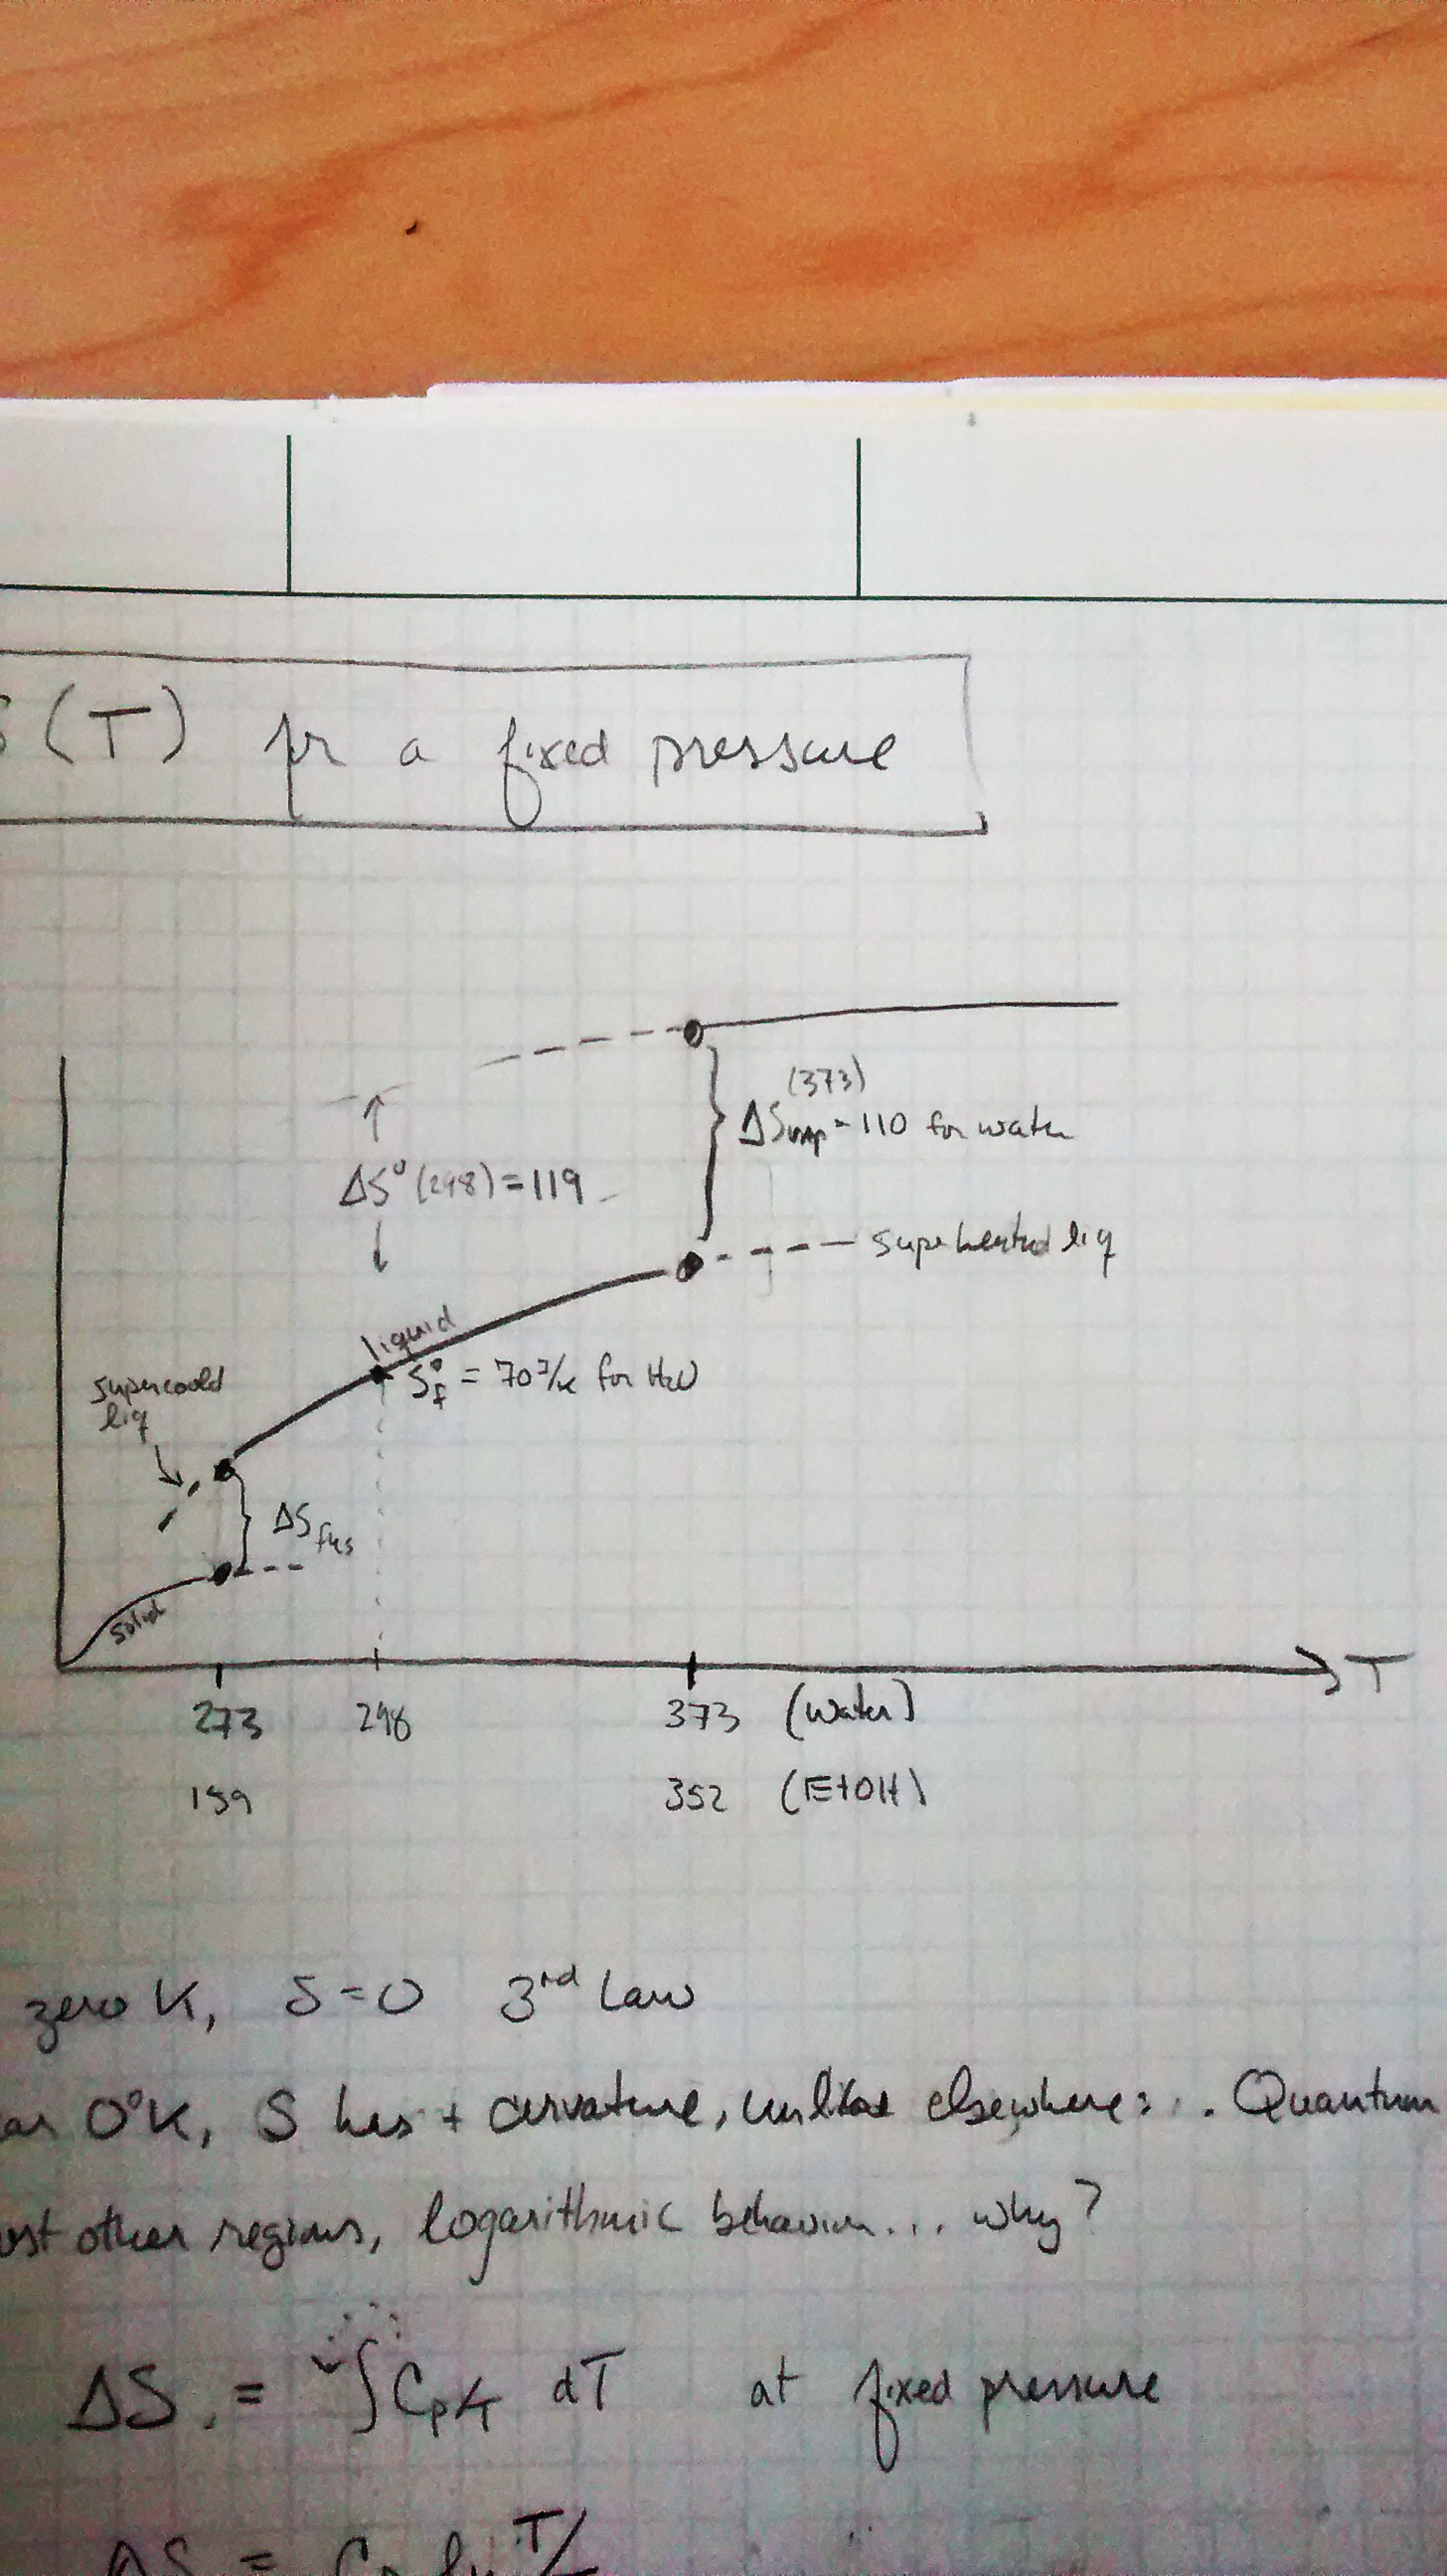 S(T) for a fixed pressure
(373)
ΔSvap = 110 for water
ΔS°(298) = 119
superheated liq
liquid
S°f = 70 J/K for H2O
supercoold
liq
ΔSfus
solid
T
273 298 373 (water)
159 352 (EtOH)
zero K, S=0 3rd Law
0°K, S has + curvature, unlike elsewhere: . Quantum
other regions, logarithmic behavior... why?
ΔS = ∫ Cp/T dT at fixed pressure
ΔS = Cp ln T/